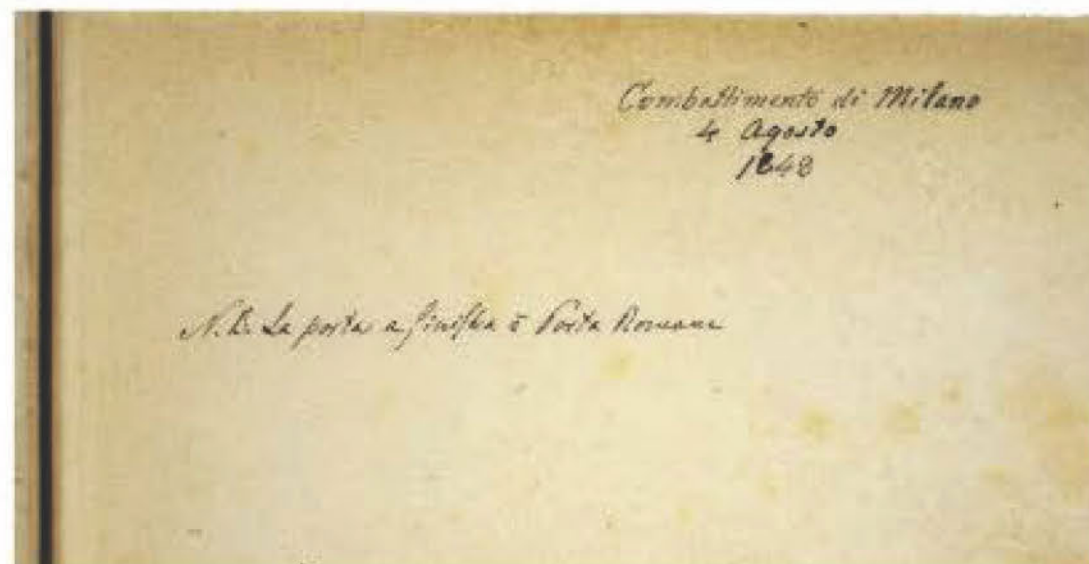 Combattimento di Milano
4 Agosto
1848
N.B. La porta a sinistra è Porta Romana